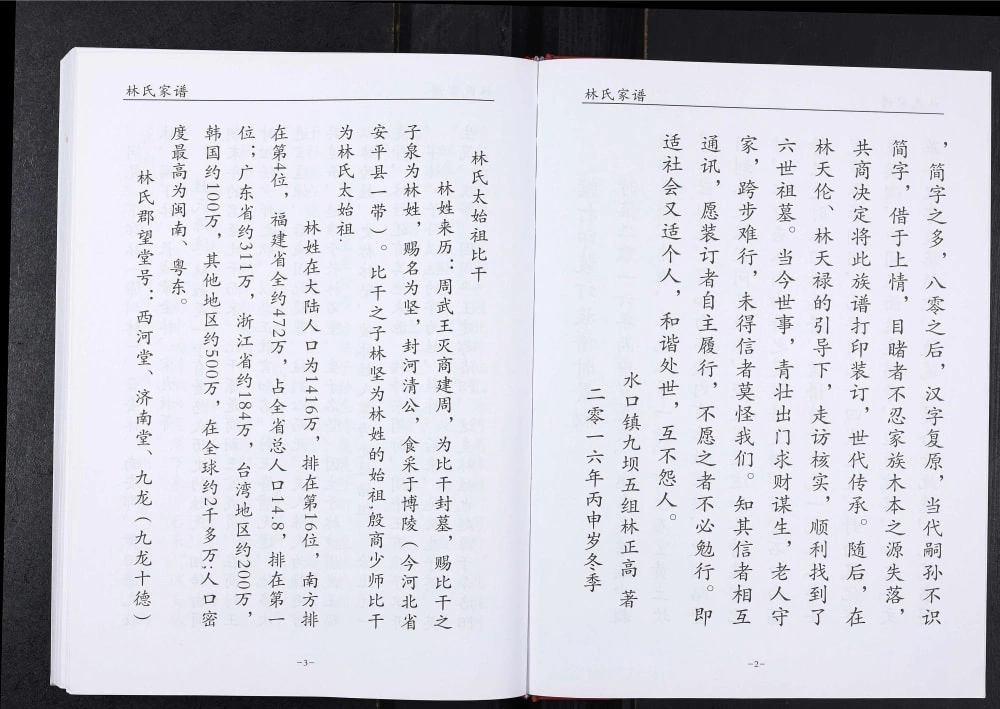 林氏家谱
，简字之多，八零之后，汉字复原，当代嗣孙不识
简字，借于上情，目睹者不忍家族木本之源失落，
共商决定将此族谱打印装订，世代传承。随后，在
林天伦、林天禄的引导下，走访核实，顺利找到了
六世祖墓。当今世事，青壮出门求财谋生，老人守
家，跨步难行，未得信者莫怪我们。知其信者相互
通讯，愿装订者自主履行，不愿之者不必勉行。即
适社会又适个人，和谐处世，互不怨人。
水口镇九坝五组林正高 著
二零一六年丙申岁冬季
-2-
林氏家谱
林氏太始祖比干
林姓来历：周武王灭商建周，为比干封墓，赐比干之
子泉为林姓，赐名为坚，封河清公，食采于博陵（今河北省
安平县一带）。比干之子林坚为林姓的始祖,殷商少师比干
为林氏太始祖.
林姓在大陆人口为1416万，排在第16位，南方排
在第4位，福建省全约472万，占全省总人口14.8，排在第一
位；广东省约311万，浙江省约184万，台湾地区约200万，
韩国约100万，其他地区约500万，在全球约2千多万:人口密
度最高为闽南、粤东。
林氏郡望堂号：西河堂、济南堂、九龙（九龙十德）
-3-